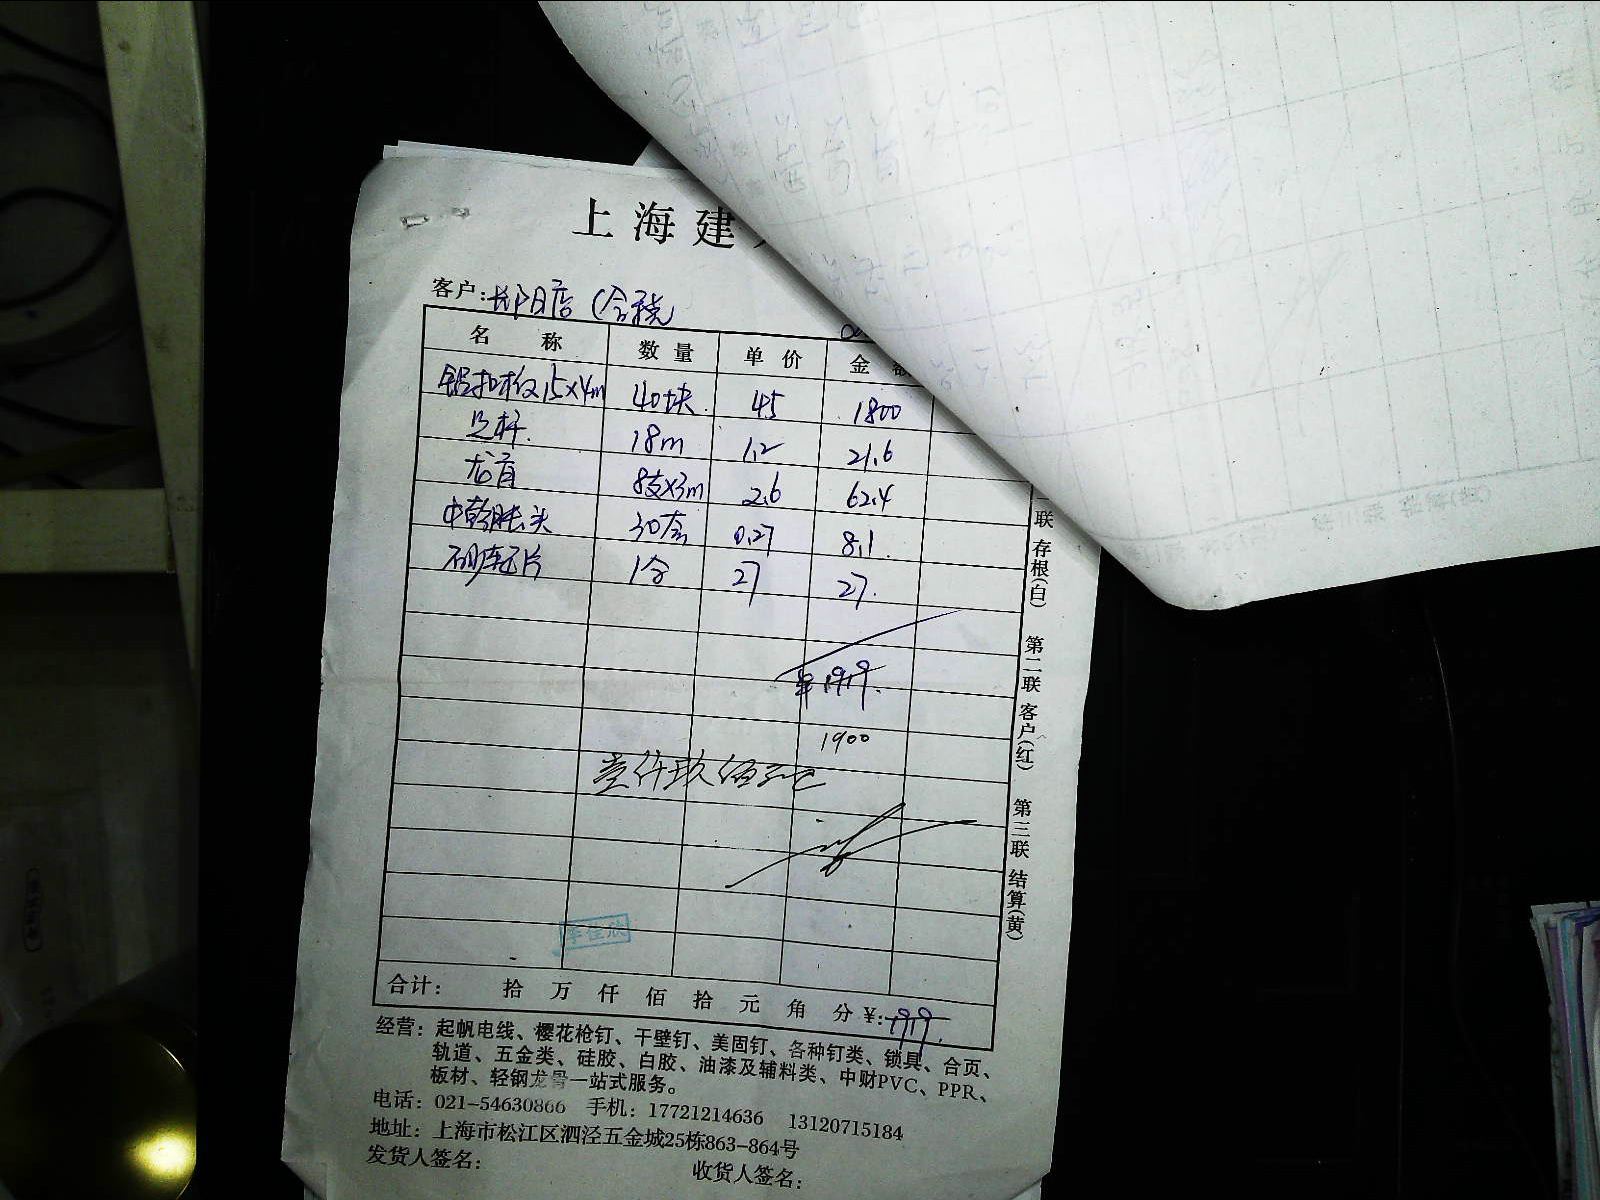 上海建
客户:长阳店（含税
名 称 数量 单价 金额
铝扣板15×4m 40块 45 1800
吊杆 18m 1.2 21.6
龙骨 8支×3m 2.6 62.4
30套 0.27 8.1
1合 27 27.
¥1919.
1900
壹仟玖佰元
李佳欣
合计: 拾 万 仟 佰 拾 元 角 分 ¥:1919.
经营：起帆电线、樱花枪钉、干壁钉、美固钉、各种钉类、锁具、合页、
轨道、五金类、硅胶、白胶、油漆及辅料类、中财PVC、PPR、
板材、轻钢龙骨一站式服务。
电话：021-54630866 手机：17721214636 13120715184
地址：上海市松江区泗泾五金城25栋863-864号
发货人签名： 收货人签名：
联 存根(白) 第二联 客户(红) 第三联 结算(黄)